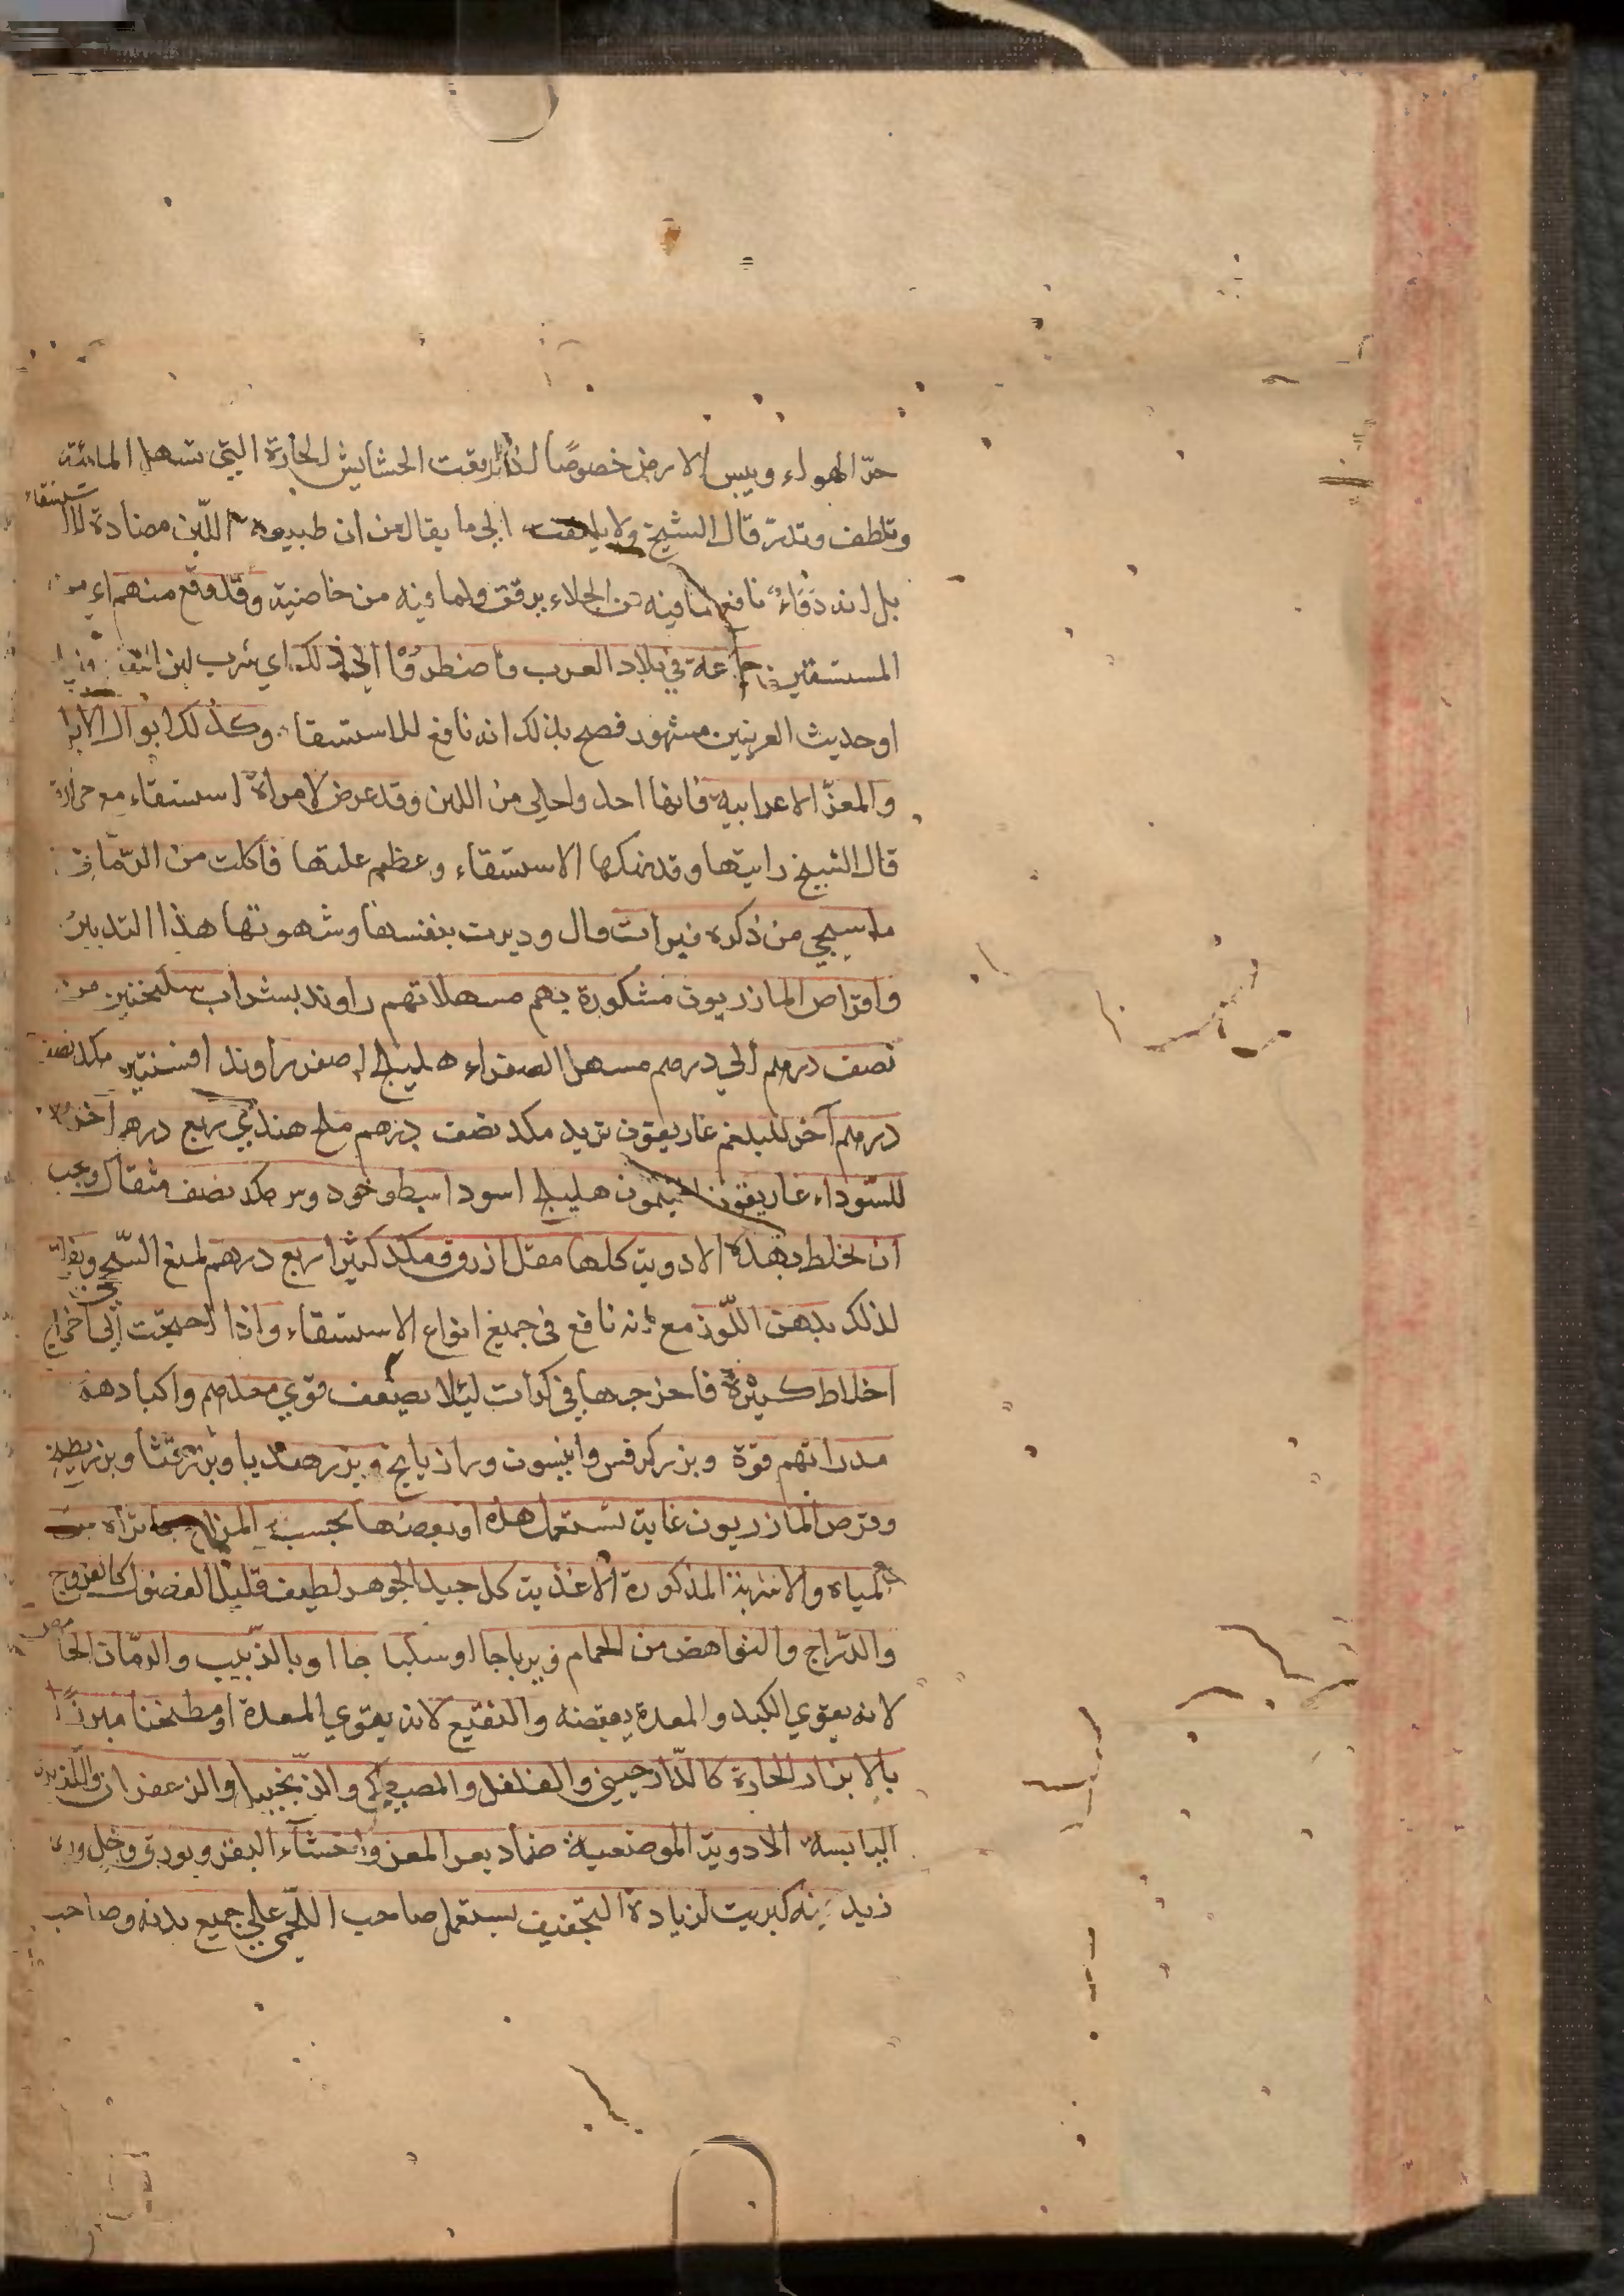 حرّ الهواء ويبس الارض خصوصًا اذا رعت الحشايش الحارة التي تسهل المائية
وتلطف وتدرّ قال الشيخ ولا يلتفت الى ما يقال من ان طبيعة اللّبن مضادة للاستسقاء
بل انه دَوَاءٌ نافع لما فيه من الجلاء برقق ولما فيه من خاصية وقد وقع منهم
المستسقين جماعة في بلاد العرب فاضطروا الى ذلك اي شرب لبن
وحديث العرنيين مشهور فصح بذلك انه نافع للاستسقاء وكذلك ابوال الابل
والمعز الاعرابية فانها احد واجلى من اللبن وقد عرض لامرأة استسقاء مع حرارة
قال الشيخ رايتها وقد نهكها الاستسقاء وعظم عليها فاكلت من الرمان
ما سيجي من ذكره فبرات قال ودبرت بنفسها وشهوتها هذا التدبير
واقراص المازريون مشكورة بهم مسهلاتهم راوند بشراب سكنجبين من
نصف درهم الى درهم مسهل الصفراء هليلج اصفر راوند افسنتين مكد نصف
درهم آخر للبلغم غاريقون تربد مكد نصف درهم ملح هندي ربع درهم آخر
للسّوداء غاريقون افتيمون هليلج اسود اسطوخودوس مكد نصف مثقال ويجب
ان يخلط بهذه الادوية كلها مقل ازرق مكد كثيرا ربع درهم لمنع السّحج
لذلك بدهن اللّوز مع انه نافع في جميع انواع الاستسقاء واذا احتيجت الى اخراج
اخلاط كثيرة فاخرجها في كرات ليلا يضعف قوي معدهم واكبادهم
مدراتهم فوة وبزر كرفس وانيسون ورازيانج وبزر هندبا وبزر قثا وبزر بطيخ
وقرص المازريون غاية تستعمل هذه او بعضها بحسب المزاج تراه من
المياه والاشربة المذكورة الاغذية كل جيد الجوهر لطيف قليل الفضول كالفروج
والدرّاج والنواهض من الحمام زيرباجا او سكباجا او بالزبيب والرمّان الحامض
لانه يقوي الكبد والمعدة بقبضه والنقيع لانه يقوي المعدة او مطجنا مبزرًا
بالابزار الحارة كالدّارصيني والفلفل والمصطكي والزنجبيل والزعفران
اليابسة الادوية الموضعية ضماد بعر المعز واخثاء البقر وبورق وخل
زيد فيه كبريت لزيادة التجفيف يستعمل صاحب اللّحمي على جميع بدنه وصاحب